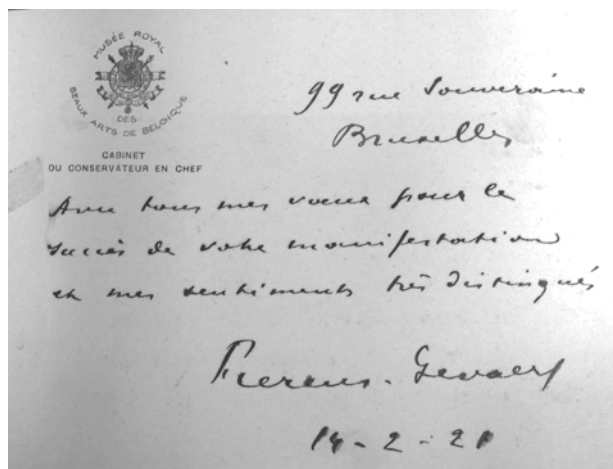 MUSÉE ROYAL
DES
BEAUX ARTS DE BELGIQUE
CABINET
DU CONSERVATEUR EN CHEF
99 rue Souveraine
Bruxelles
Avec tous mes vœux pour le
succès de votre manifestation
et mes sentiments très distingués
Fierens-Gevaert
14-2-21